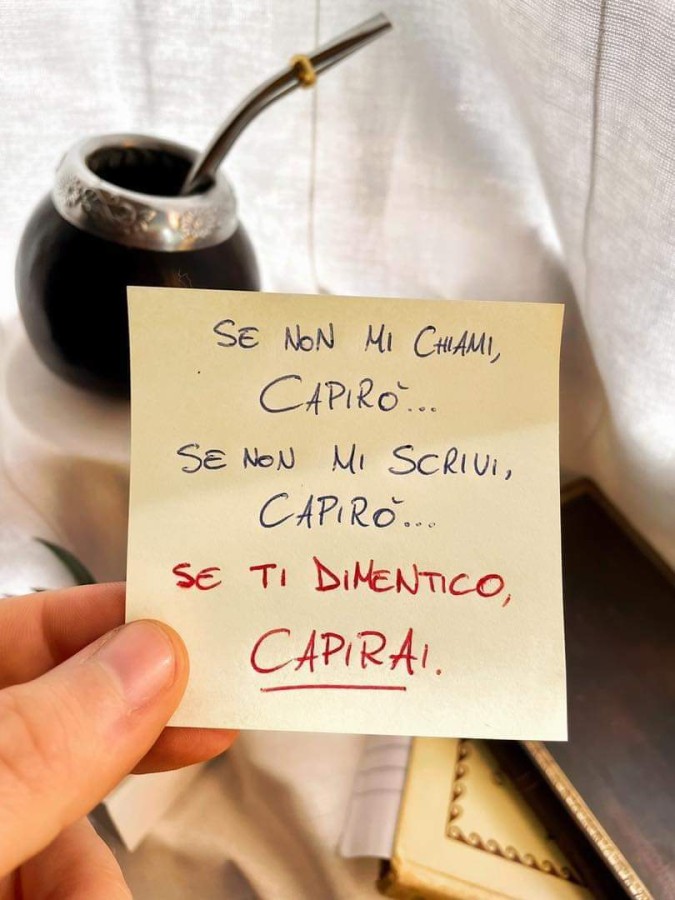 SE NON MI CHIAMI,
CAPIRÒ...
SE NON MI SCRIVI,
CAPIRÒ...
SE TI DIMENTICO,
CAPIRAI.